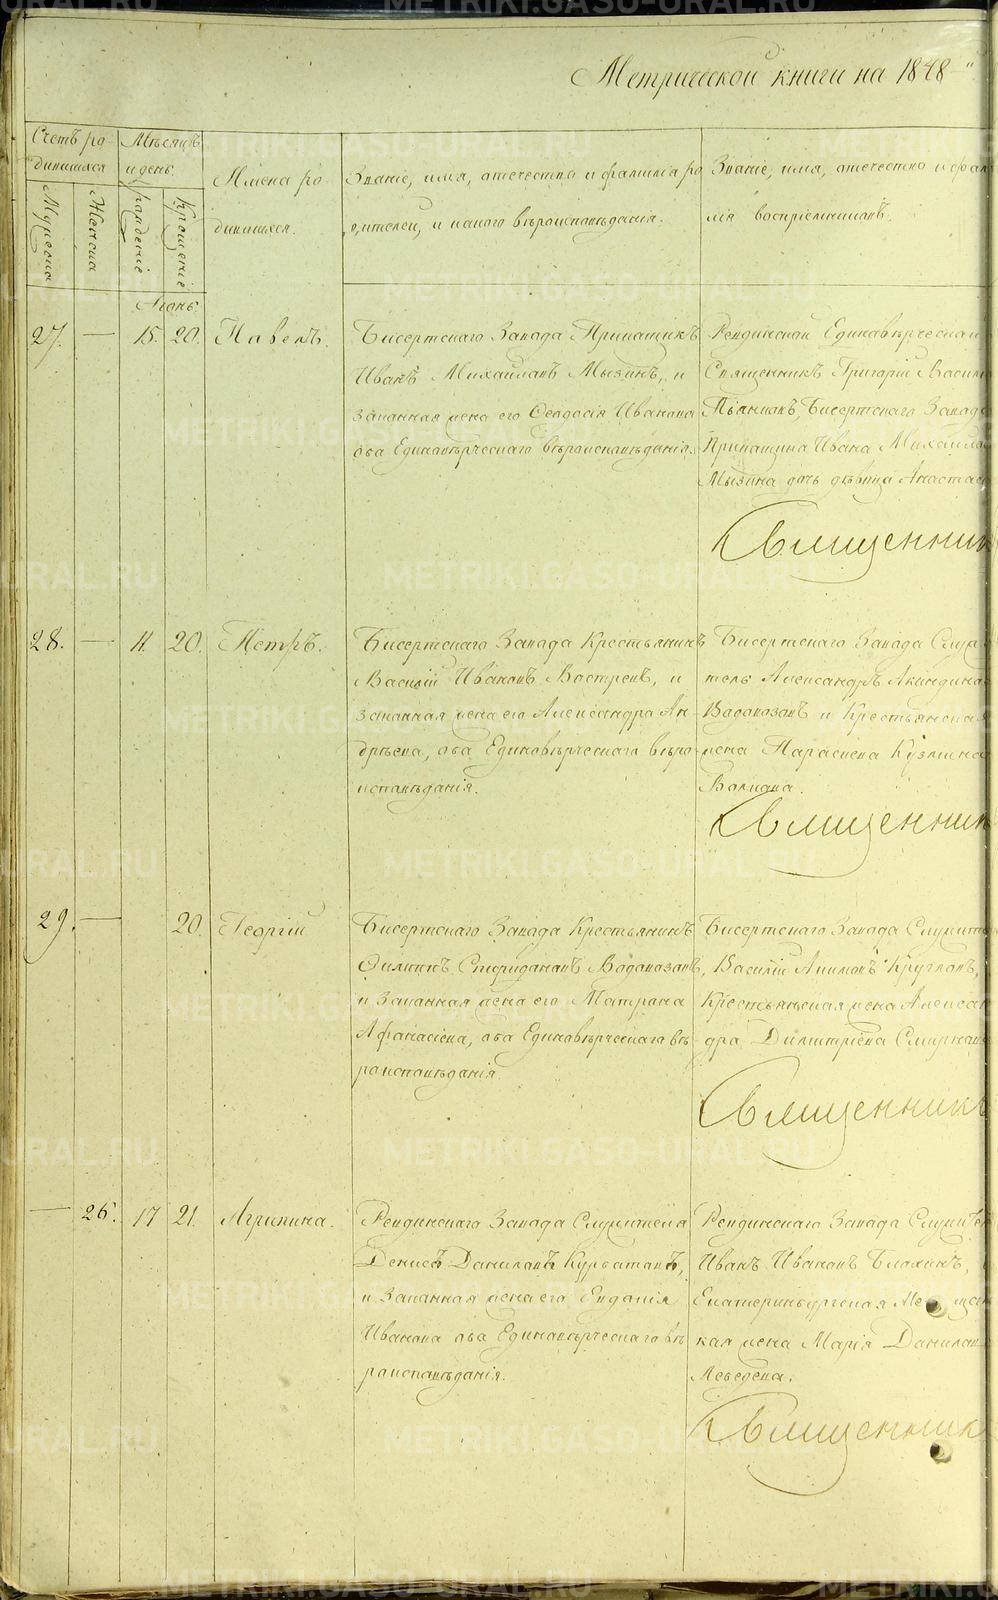 Метрической книги на 1848
Счетъ ро-
дившихся
Мужеска
Женска
Мѣсяцъ
и день.
рожденіе
Крещеніе
Имена ро
дившихся.
Званіе, имя, отечество и фамилія ро
дителей, и какого вѣроисповѣданія.
Званіе, имя, отечество и фами
лія воспріемниковъ.
Іюнь.
27. — 15. 20. Павелъ.
Бисертскаго Завода Прикащикъ
Иванъ Михайловъ Мызинъ, и
законная жена его Ѳеодосія Иванова
оба Единовѣрческаго вѣроисповѣданія.
Ревдинской Единовѣрческой
Священникъ Григорій Васил
Пьянковъ, Бисертскаго Завода
Прикащика Ивана Михайлов
Мызина дочь дѣвица Анастас
Священник
28. — 11. 20. Петръ.
Бисертскаго Завода Крестьянинъ
Василій Ивановъ Вострецъ, и
законная жена его Александра Ан-
дрѣева, оба Единовѣрческаго вѣро
исповѣданія.
Бисертскаго Завода Служи
тель Александръ Акиндинов
Водовозовъ и Крестьянская
жена Парасκева Кузмина
Волкова.
Священник
29. — 20. Георгій
Бисертскаго Завода Крестьянинъ
Филиппъ Спиридоновъ Водовозовъ,
и Законная жена его Матрона
Афанасіева, оба Единовѣрческаго вѣ
роисповѣданія.
Бисертскаго Завода Служит
Василій Акимовъ Кругловъ,
Крестьянская жена Алексан
дра Дмитріева Смирнов
Священникъ
— 26. 17 21. Агрипина.
Ревдинскаго Завода Служителя
Денисъ Даниловъ Курбатовъ,
и Законная жена его Евдокія
Иванова оба Единовѣрческаго вѣ
роисповѣданія.
Ревдинскаго Завода Служител
Иванъ Ивановъ Блохинъ,
Екатеринбургская Мещан
кая жена Марія Данилов
Лебедева.
Священник
METRIKI.GASO-URAL.RU